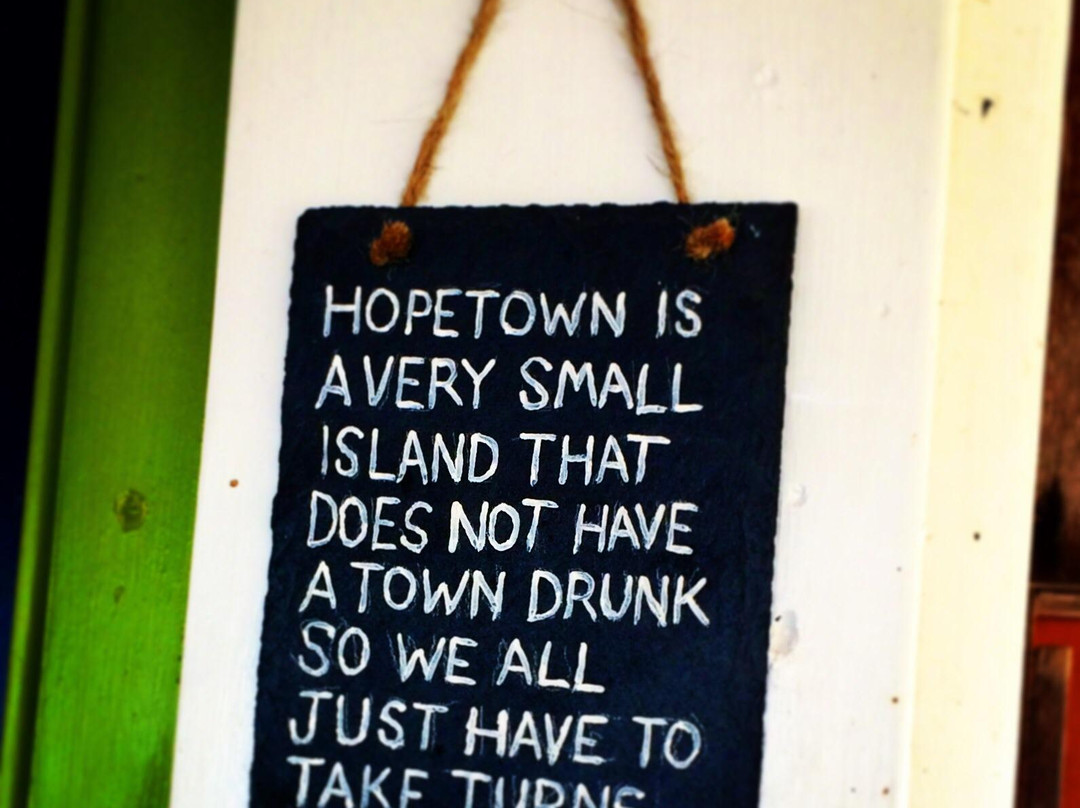 HOPETOWN IS
A VERY SMALL
ISLAND THAT
DOES NOT HAVE
A TOWN DRUNK
SO WE ALL
JUST HAVE TO
TAKE TURNS